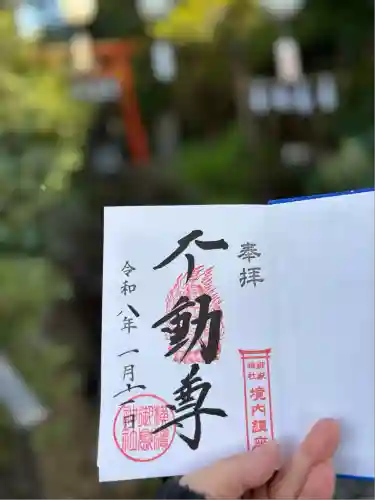 奉拝
不動尊
令和八年一月十一日
境内